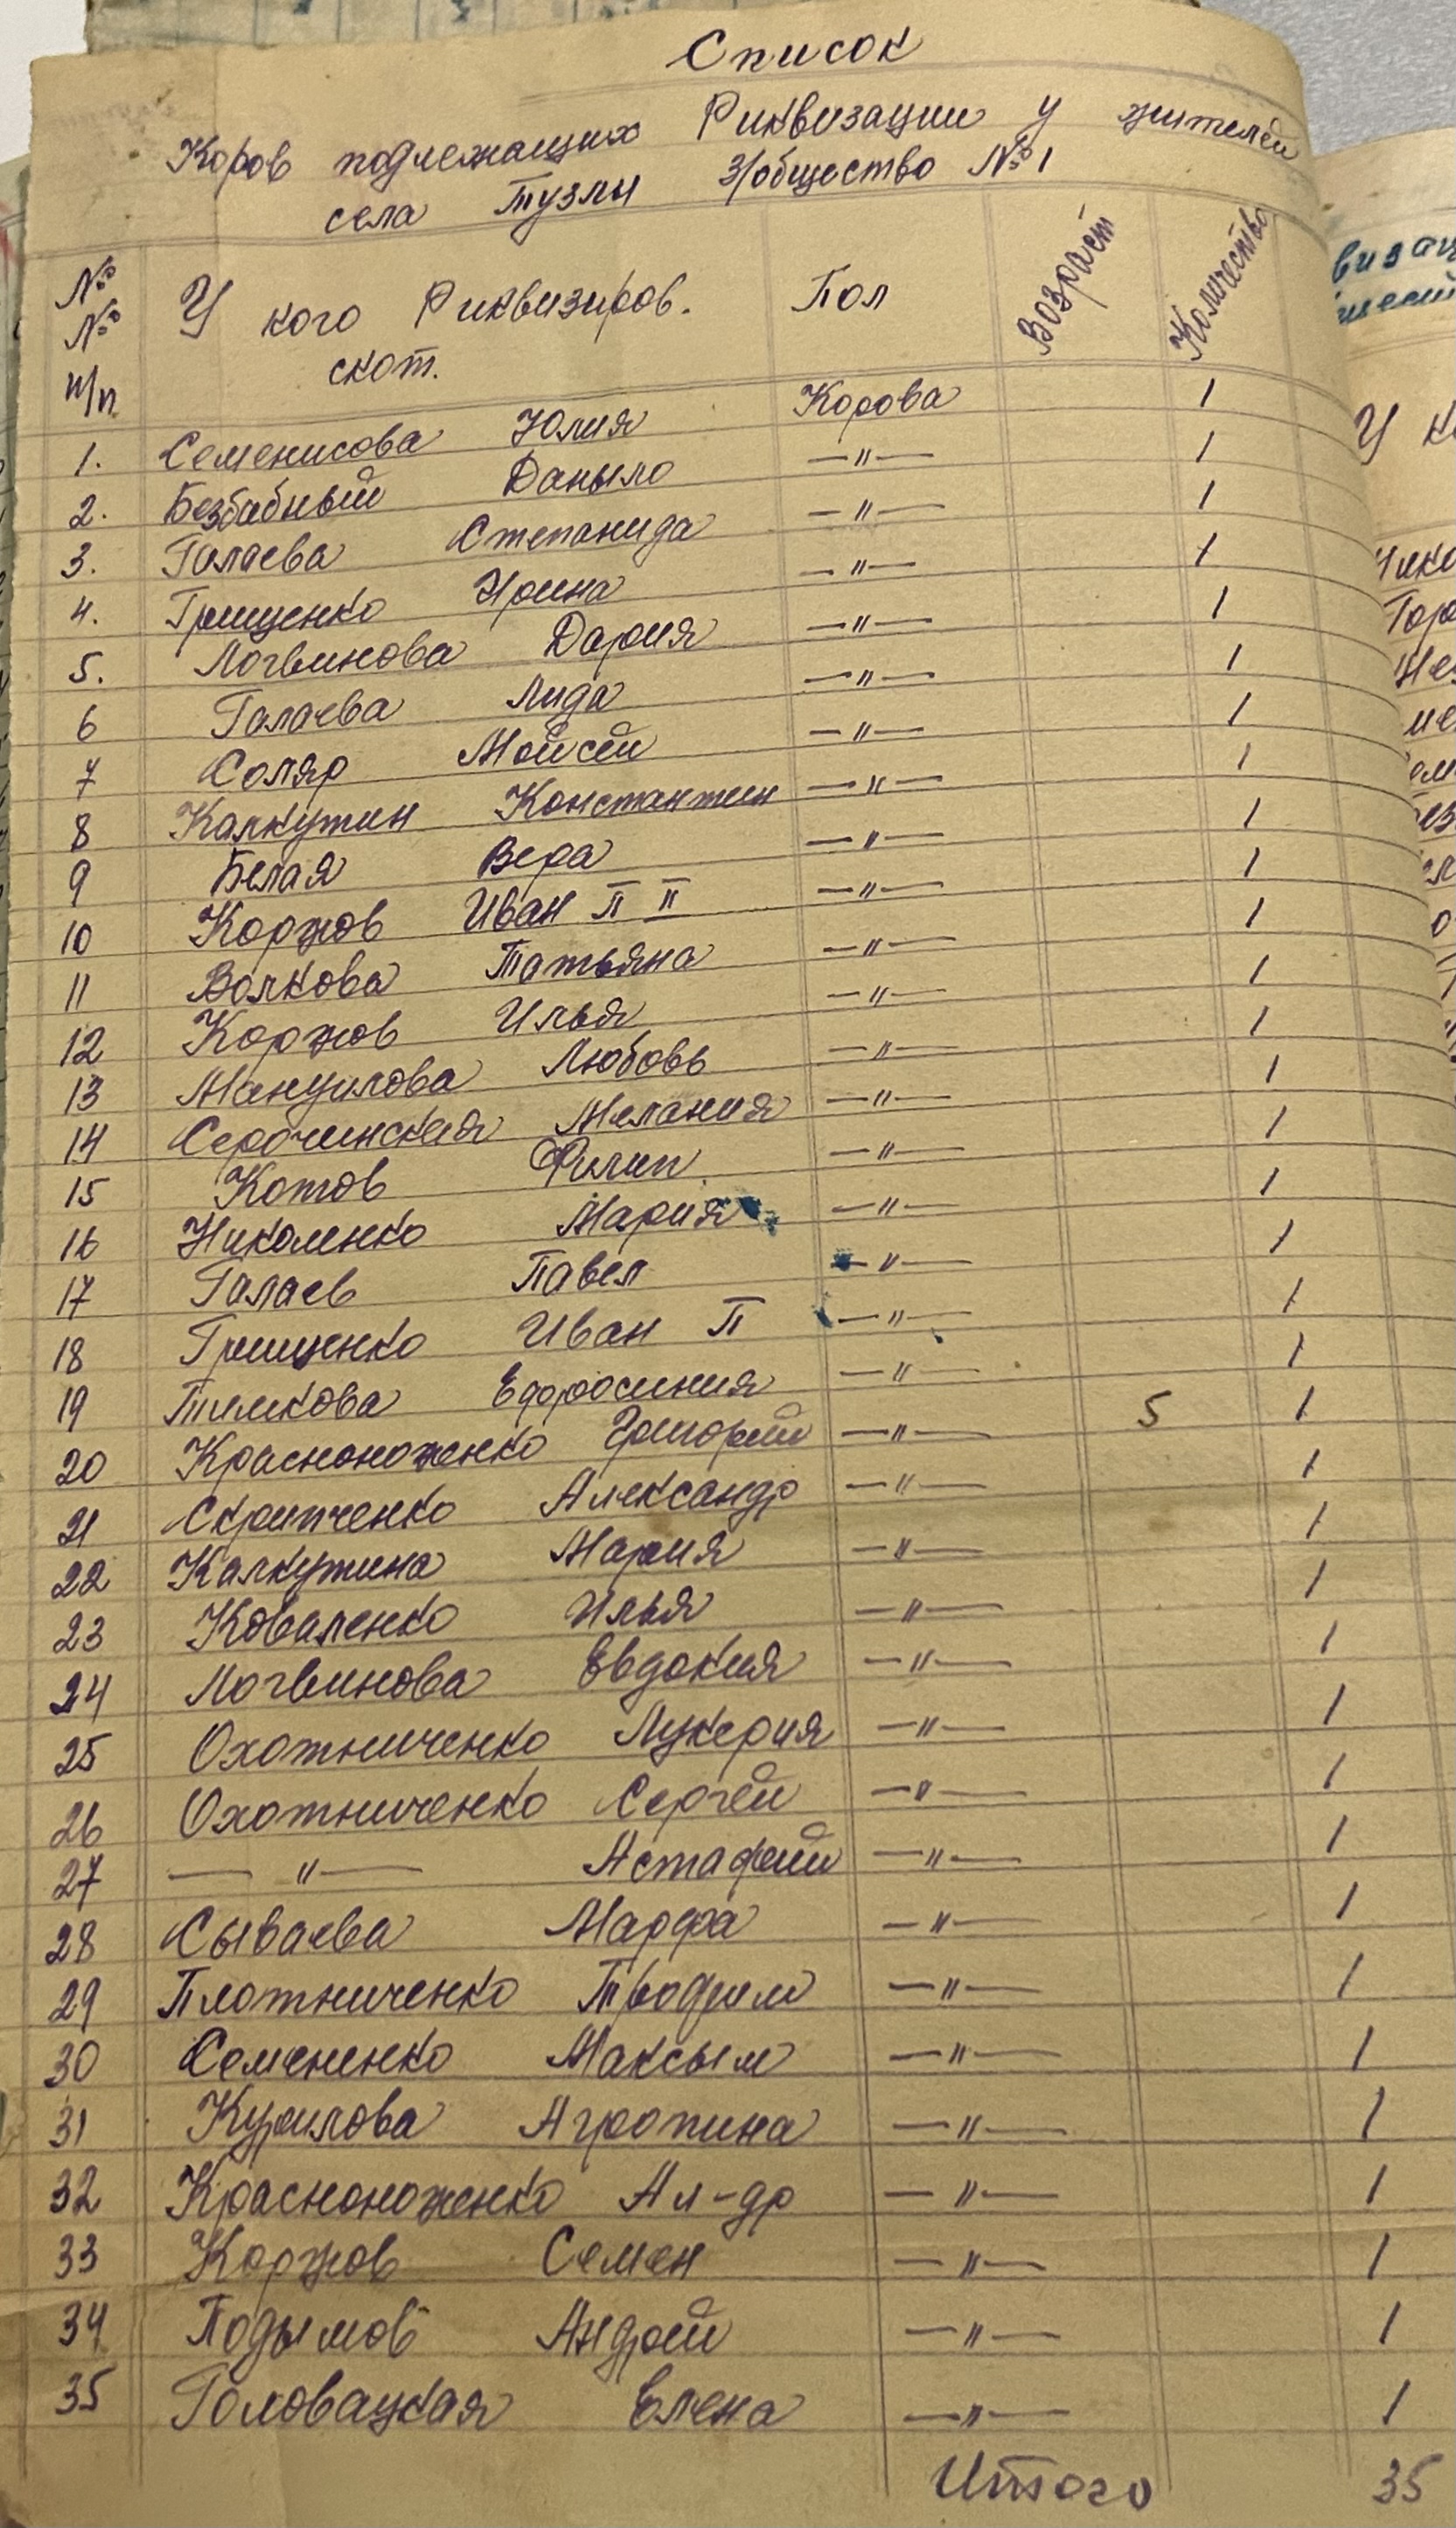 Список
Коров подлежащих Риквизации у жителей
села Тузлы З/общество №1
№ № п/п У кого Риквизиров. скот. Пол Возраст Количество
1. Семенисова Юлия Корова 1
2. Безбабный Даныло —"— 1
3. Галаева Степанида —"— 1
4. Грищенко Ирина —"— 1
5. Логвинова Дария —"— 1
6 Галаева Лида —"— 1
7 Соляр Мойсей —"— 1
8 Калкутин Константин —"— 1
9 Белая Вера —"— 1
10 Коржов Иван П II —"— 1
11 Волкова Татьяна —"— 1
12 Коржов Илья —"— 1
13 Мануилова Любовь —"— 1
14 Серочинская Мелания —"— 1
15 Котов Филип —"— 1
16 Николенко Мария —"— 1
17 Галаев Павел —"— 1
18 Грищенко Иван П —"— 1
19 Тимкова Ефросиния —"— 1
20 Красноноженко Григорий —"— 5 1
21 Скрипченко Александр —"— 1
22 Калкутина Мария —"— 1
23 Коваленко Илья —"— 1
24 Логвинова Евдокия —"— 1
25 Охотниченко Лукерия —"— 1
26 Охотниченко Сергей —"— 1
27 —"— Астафий —"— 1
28 Сываева Марфа —"— 1
29 Плотниченко Трофим —"— 1
30 Семененко Максым —"— 1
31 Курилова Агропина —"— 1
32 Красноноженко Ал-др —"— 1
33 Коржов Семен —"— 1
34 Подымов Андрей —"— 1
35 Головацкая Елена —"— 1
Итого 35